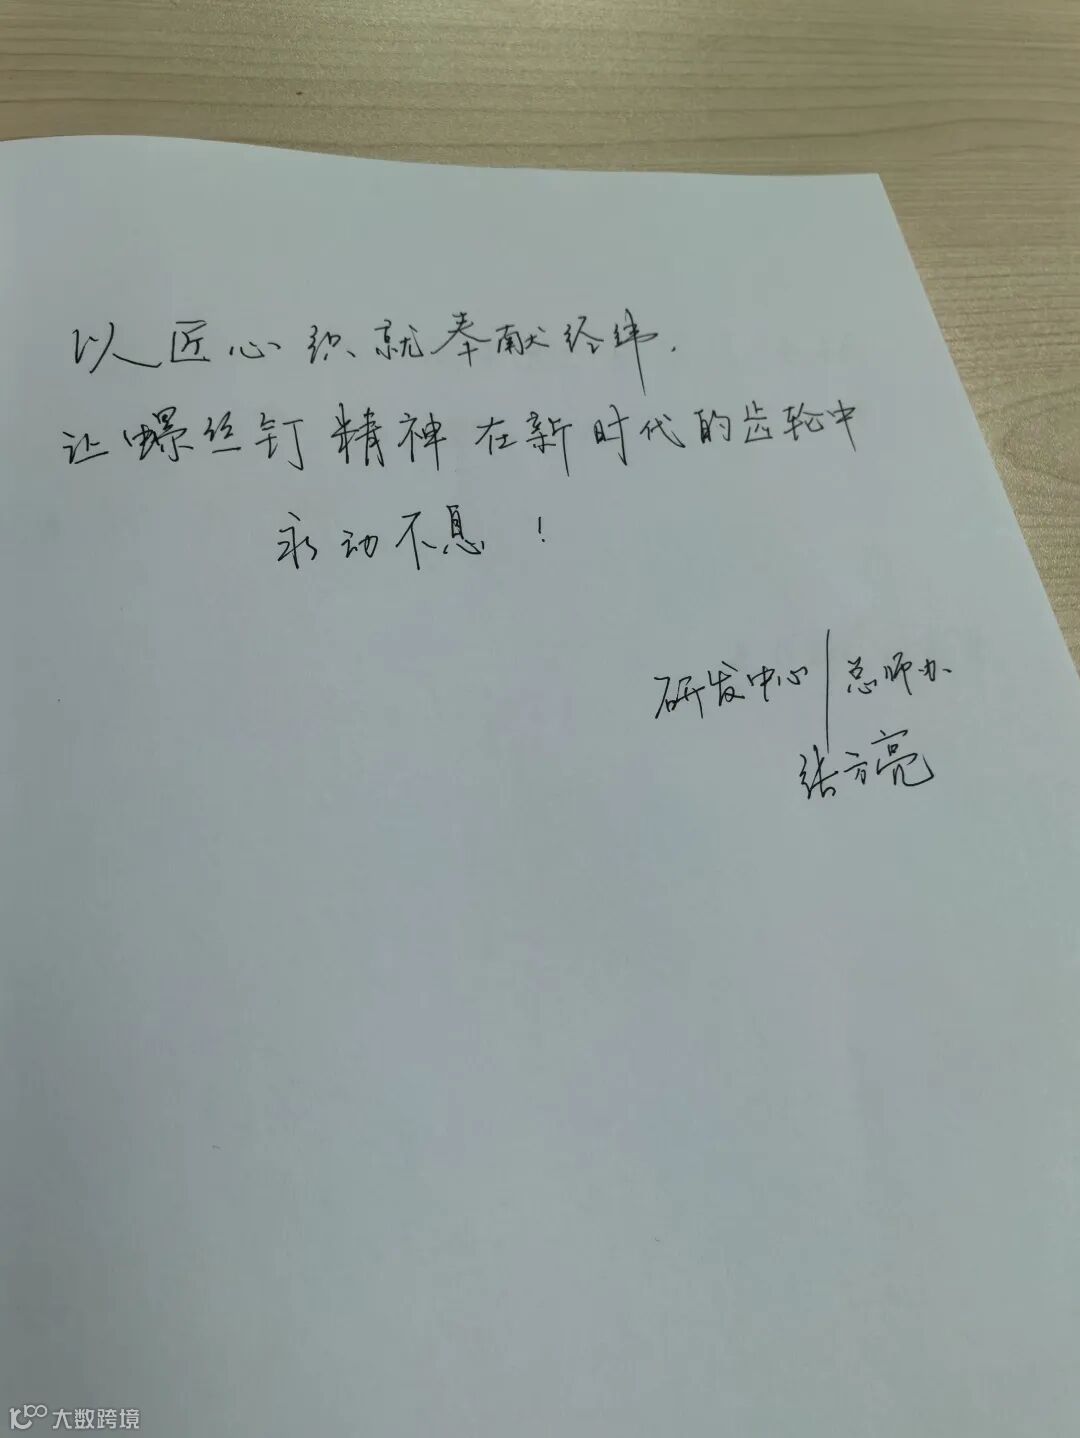 以匠心织就奉献经纬.
让螺丝钉精神在新时代的齿轮中
永动不息！
研发中心/总师办
张方亮
大数跨境